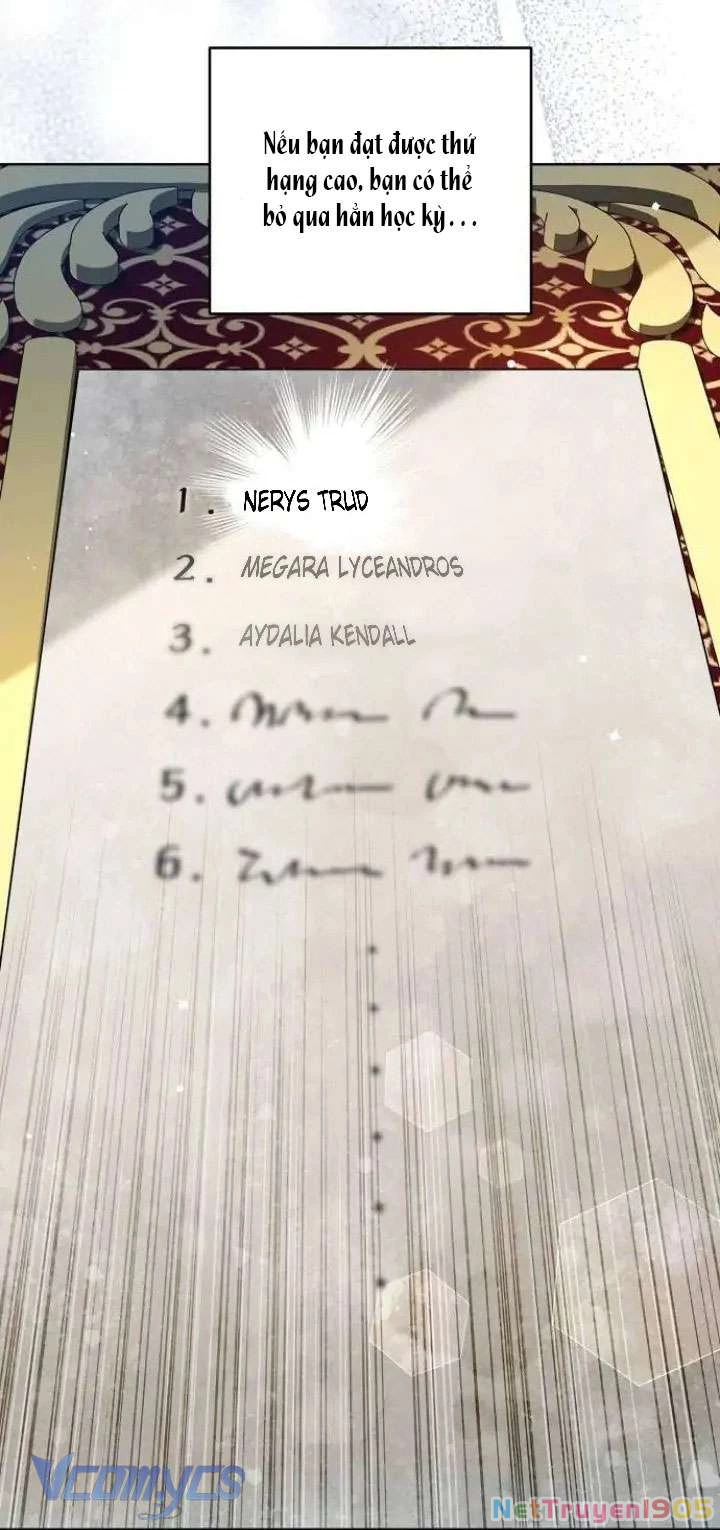 Nếu bạn đạt được thứ
hạng cao, bạn có thể
bỏ qua hẳn học kỳ...
1. NERYS TRUD
2. MEGARA LYCEANDROS
3. AYDALIA KENDALL
4.
5.
6.
Vcomycs
NetTruyen1905